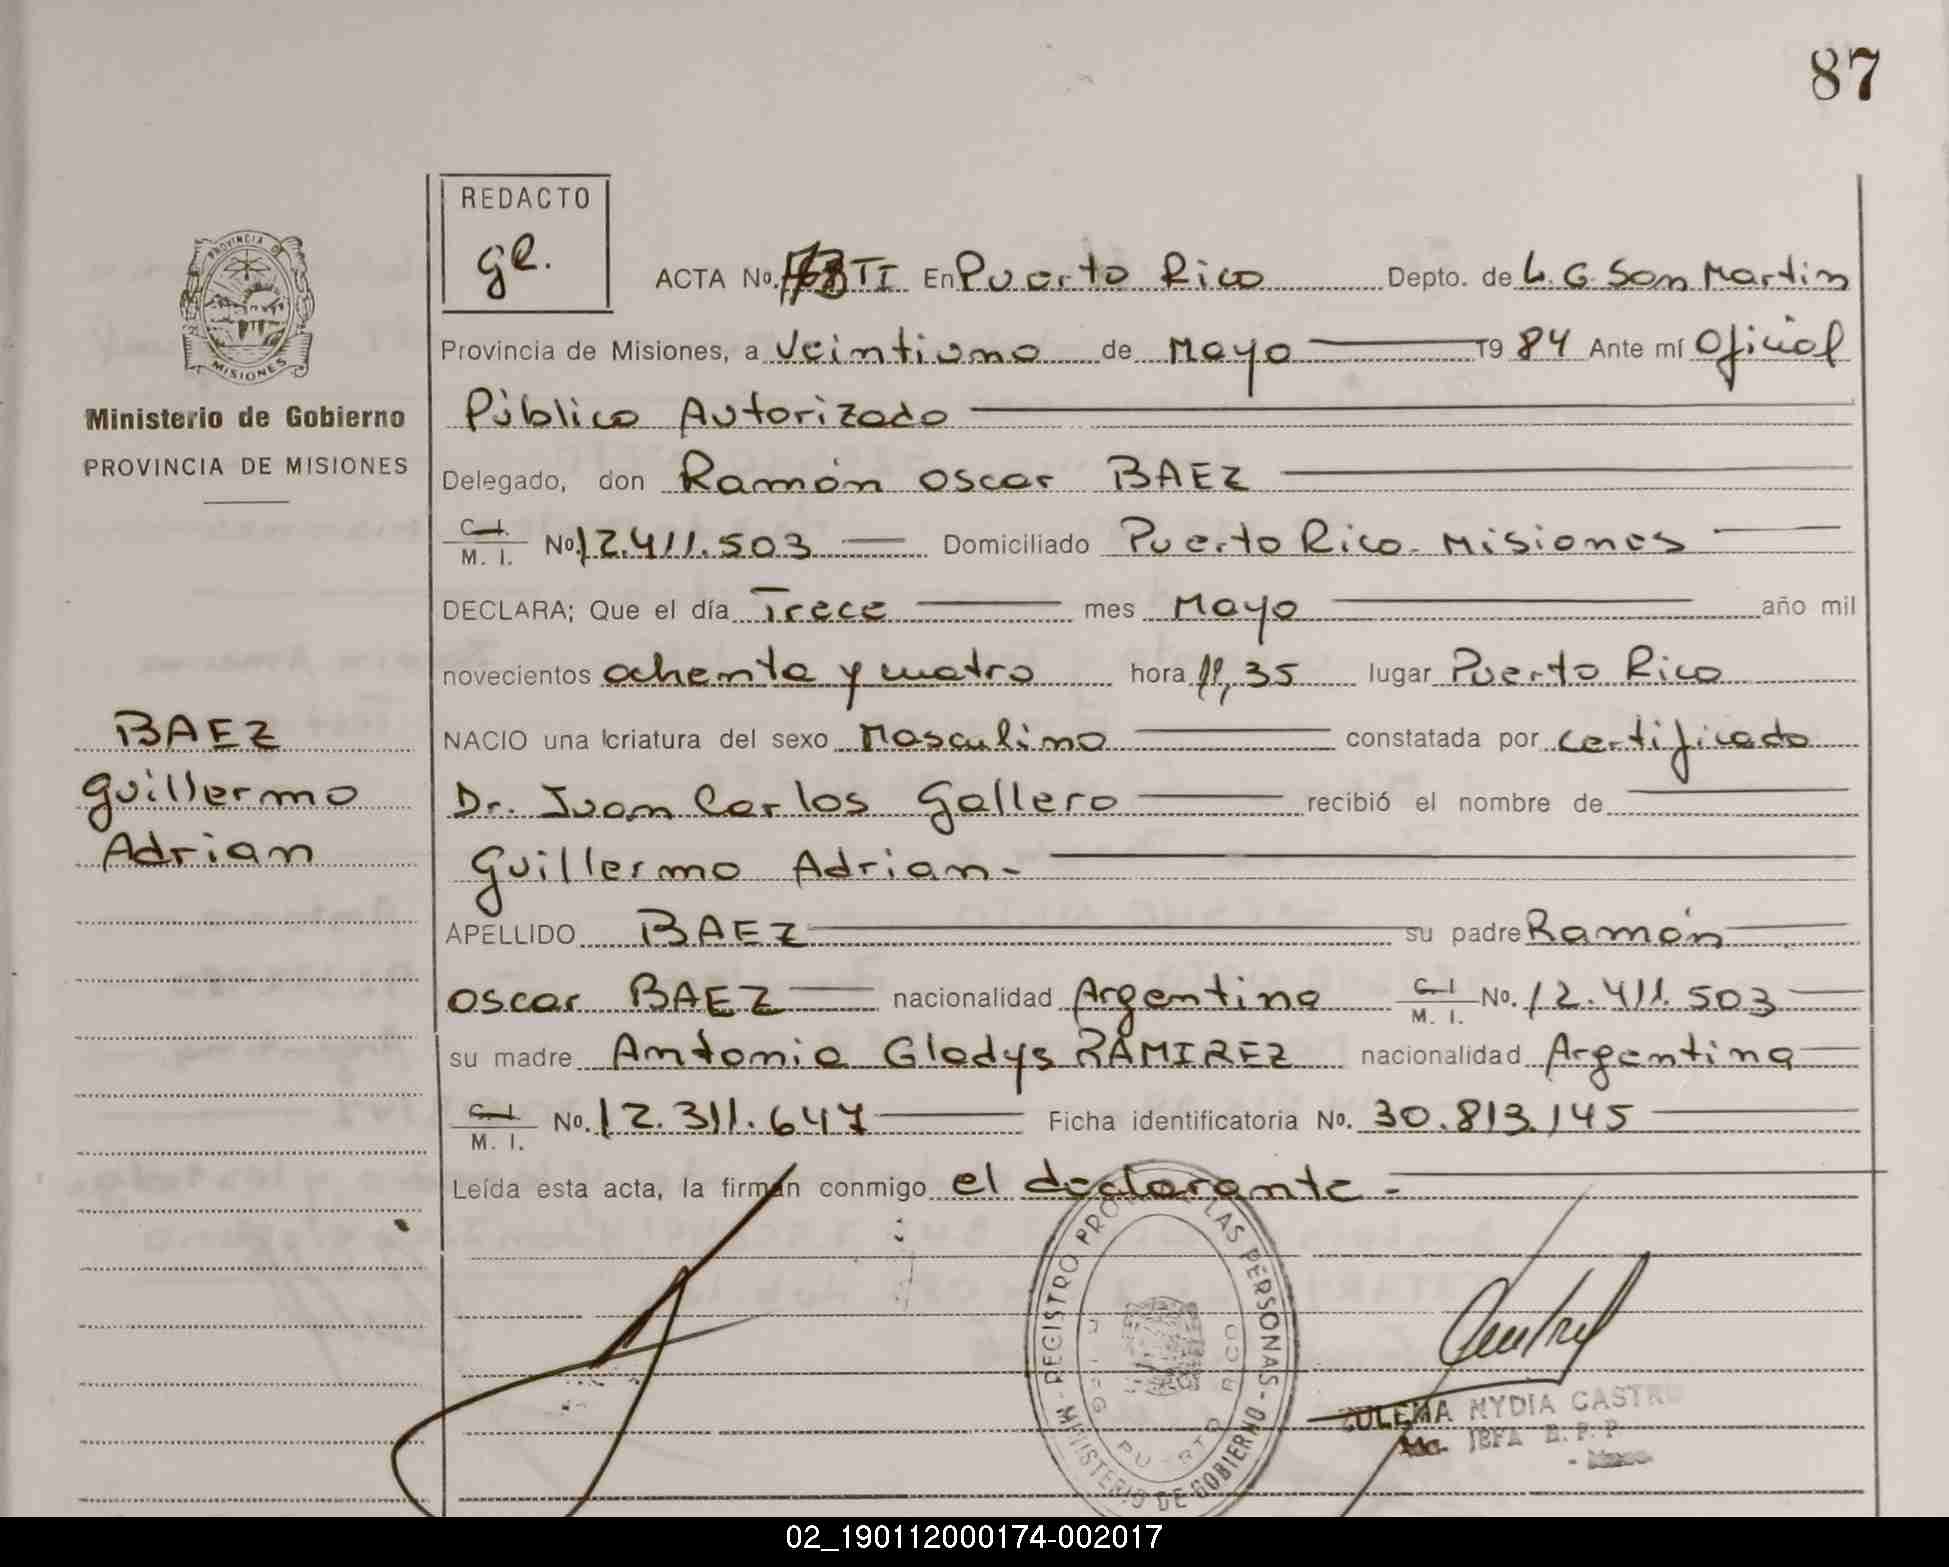 87
REDACTO
gR.
ACTA No. TI En Puerto Rico Depto. de L. G. San Martin
PROVINCIA DE
MISIONES
Provincia de Misiones, a Veintiuno de Mayo 19 84 Ante mí Oficial
Ministerio de Gobierno
Público Autorizado
PROVINCIA DE MISIONES
Delegado, don Ramón Oscar BAEZ
C. I.
M. I. No. 12.411.503 Domiciliado Puerto Rico - Misiones
DECLARA; Que el día Trece mes Mayo año mil
novecientos ochenta y cuatro hora 11,35 lugar Puerto Rico
BAEZ
NACIO una criatura del sexo Masculino constatada por certificado
Guillermo
Dr. Juan Carlos Gallero recibió el nombre de
Adrian
Guillermo Adrian-
APELLIDO BAEZ su padre Ramón
Oscar BAEZ nacionalidad Argentina C. I. M. I. No. 12.411.503
su madre Antonia Gladys RAMIREZ nacionalidad Argentina
C. I.
M. I. No. 12.311.647 Ficha identificatoria No. 30.813.145
Leída esta acta, la firmán conmigo el declarante -
REGISTRO PROV LAS PERSONAS - MINISTERIO DE GOBIERNO -
ZULEMA NYDIA CASTRO
02_190112000174-002017